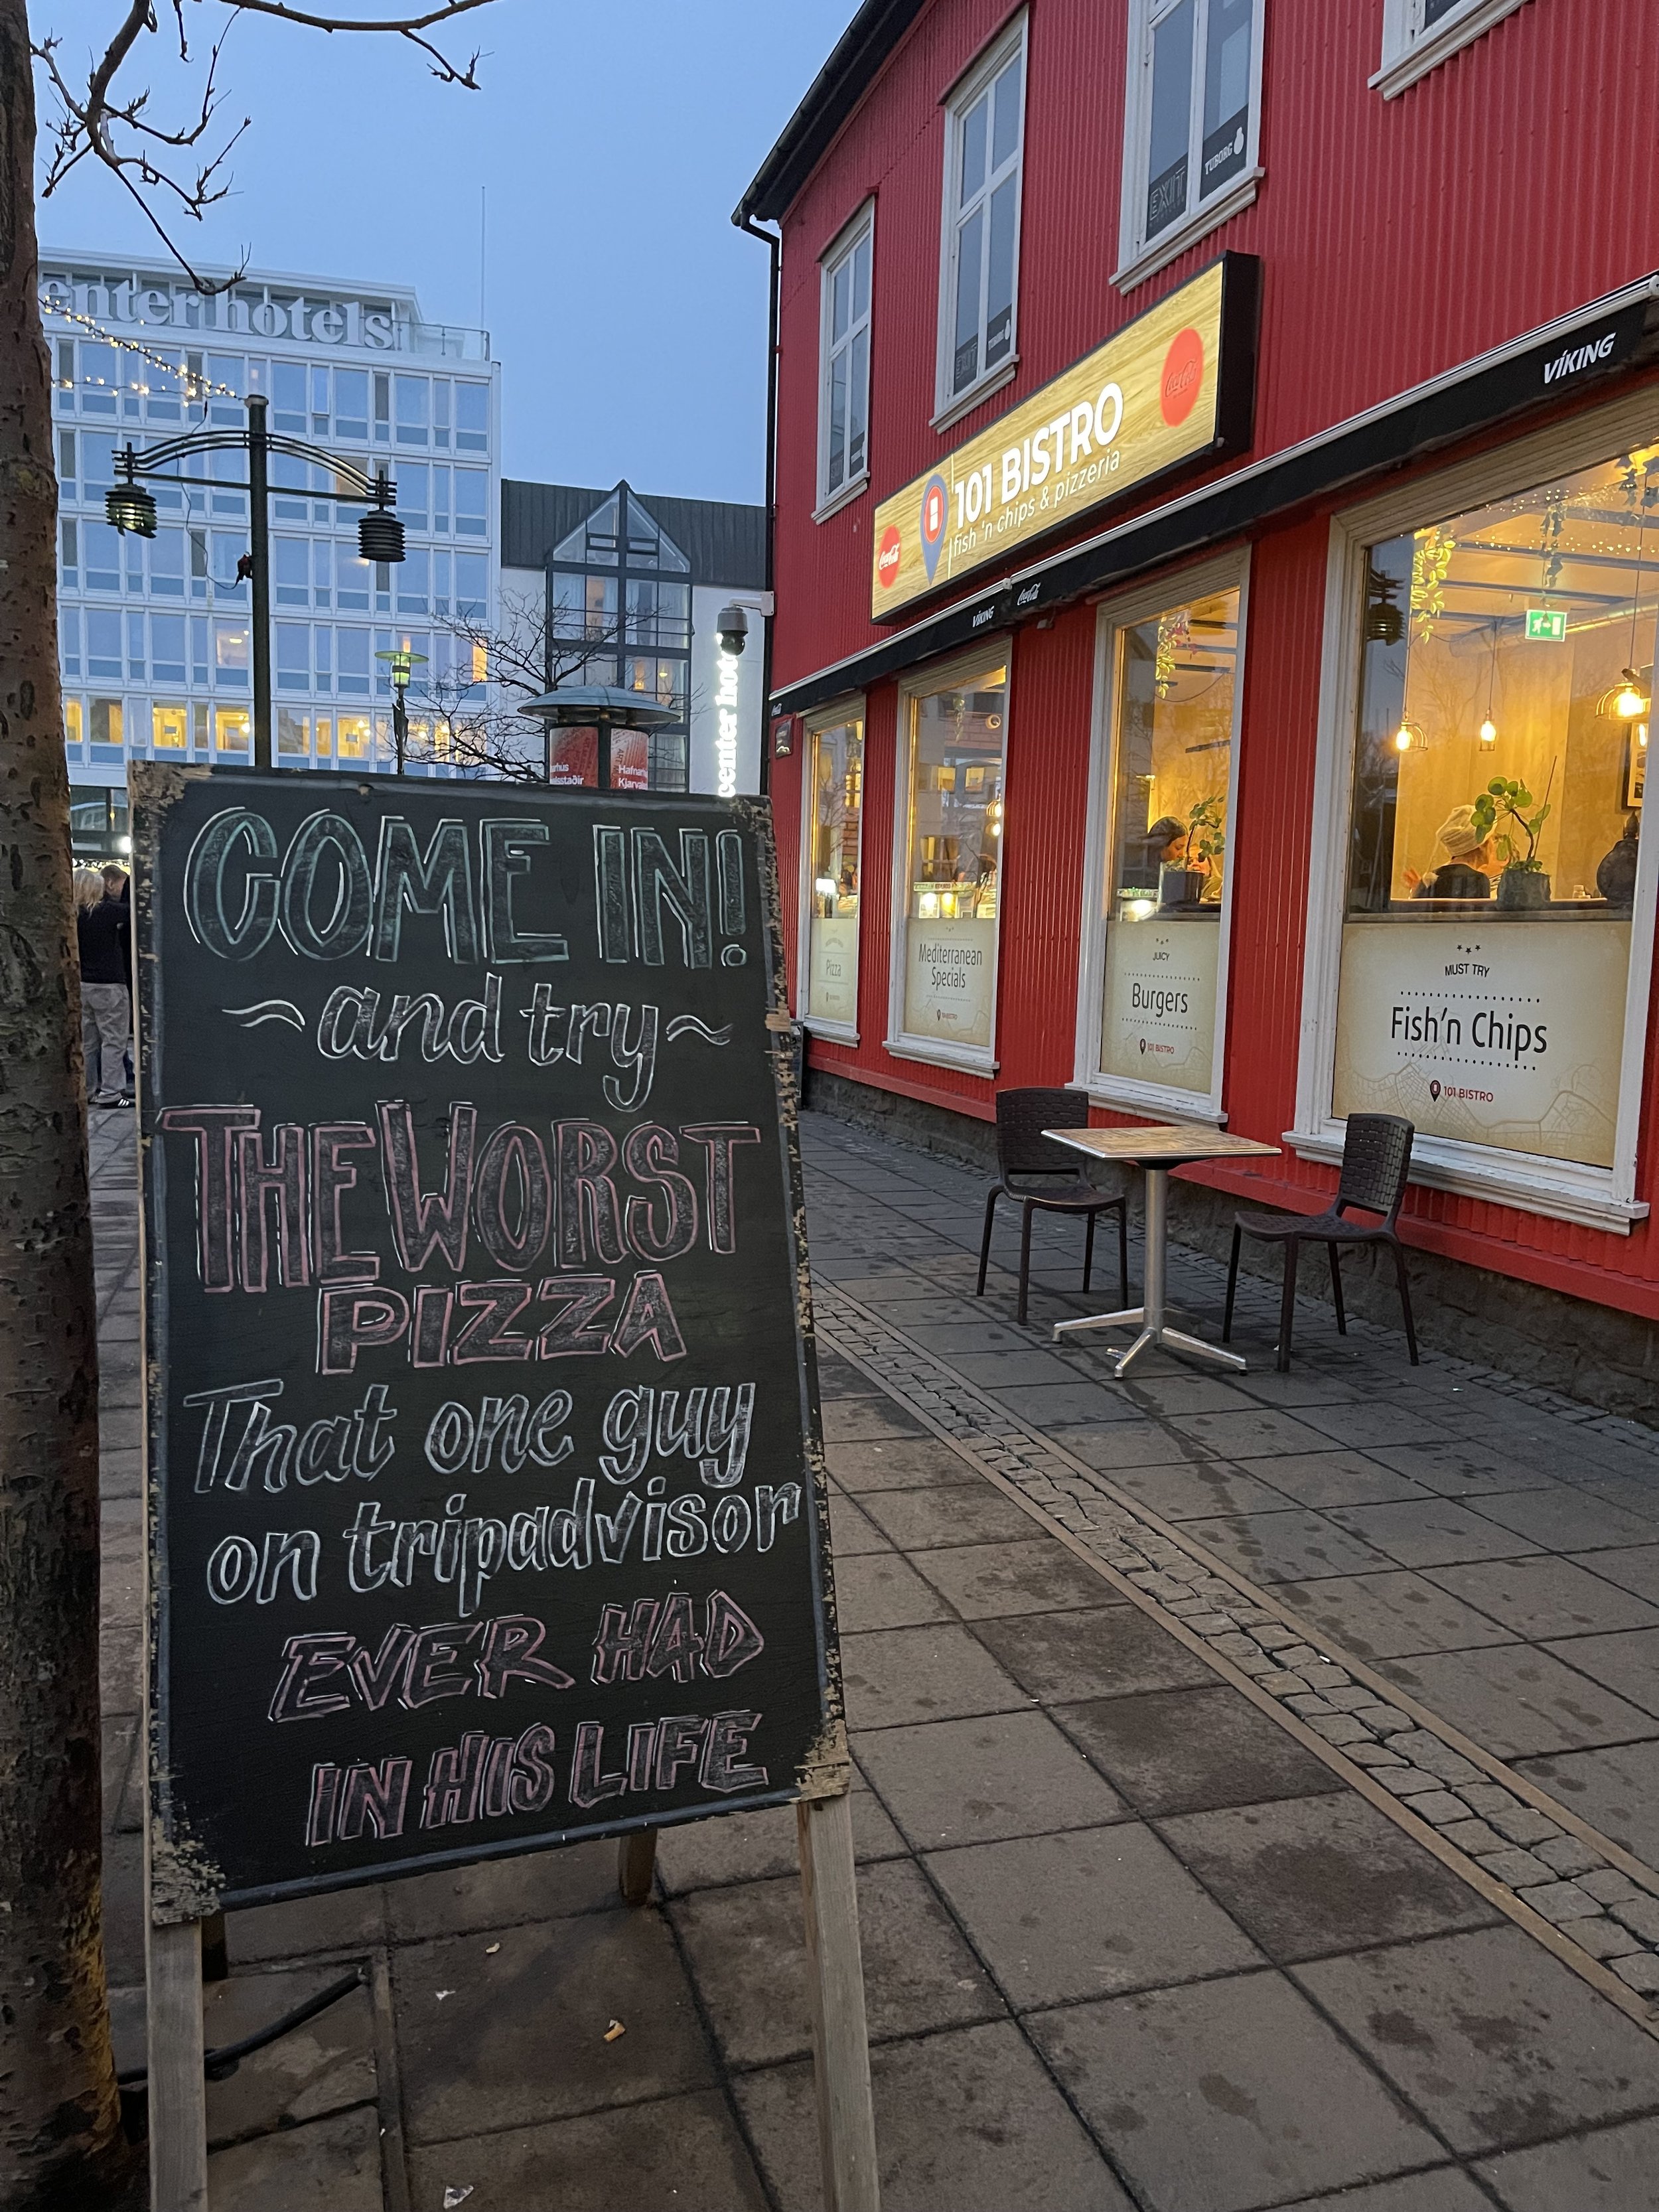 enter hotels
EXIT
TUBORG
EXIT
TUBORG
VÍKING
101 BISTRO
fish 'n chips & pizzeria
Coca-Cola
Coca-Cola
VÍKING
Coca-Cola
center hot
Hafnar
Kjarval
COME IN!
~and try~
THE WORST
PIZZA
That one guy
on tripadvisor
EVER HAD
IN HIS LIFE
Pizza
Mediterranean
Specials
101 BISTRO
JUICY
Burgers
101 BISTRO
MUST TRY
Fish'n Chips
101 BISTRO